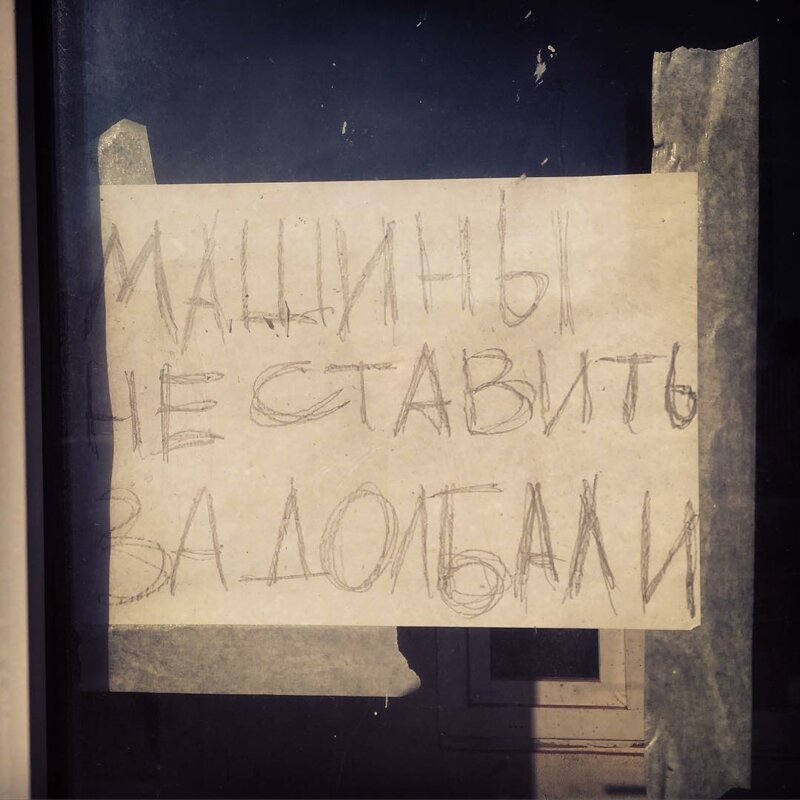 МАШИНЫ
НЕ СТАВИТЬ
ЗАДОЛБАЛИ